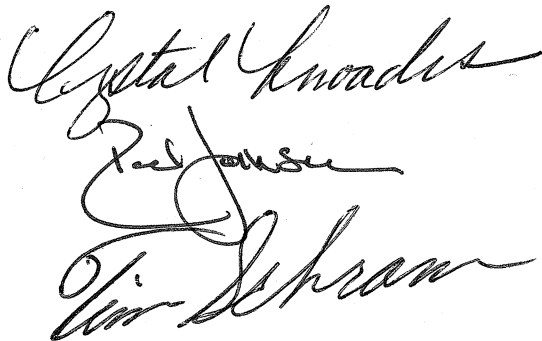 Crystal Rhoades
Rod Johnson
Tim Schram